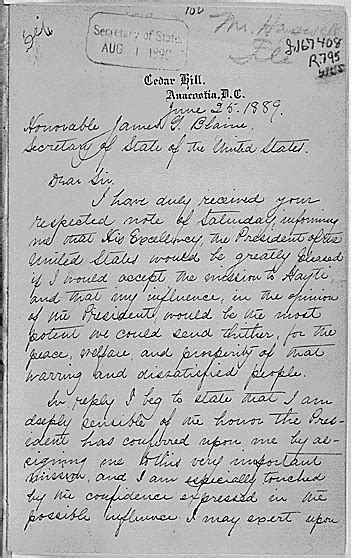 100
Secretary of State,
AUG 1 1890
Mr. Haswell
File
Cedar Hill,
Anacostia, D.C.
June 25. 1889.
Honorable James G. Blaine,
Secretary of State of the United States.
Dear Sir.
I have duly received your
respected note of Saturday, informing
me that His Excellency, the President of the
United States would be greatly pleased
if I would accept the mission to Hayti,
and that my influence, in the opinion
of the President would be the most
potent we could send thither, for the
peace, welfare, and prosperity of that
warring and dissatisfied people.
In reply I beg to state that I am
deeply sensible of the honor the Pres-
ident has conferred upon me by as-
signing me to this very important
mission, and I am especially touched
by the confidence expressed in the
possible influence I may exert upon